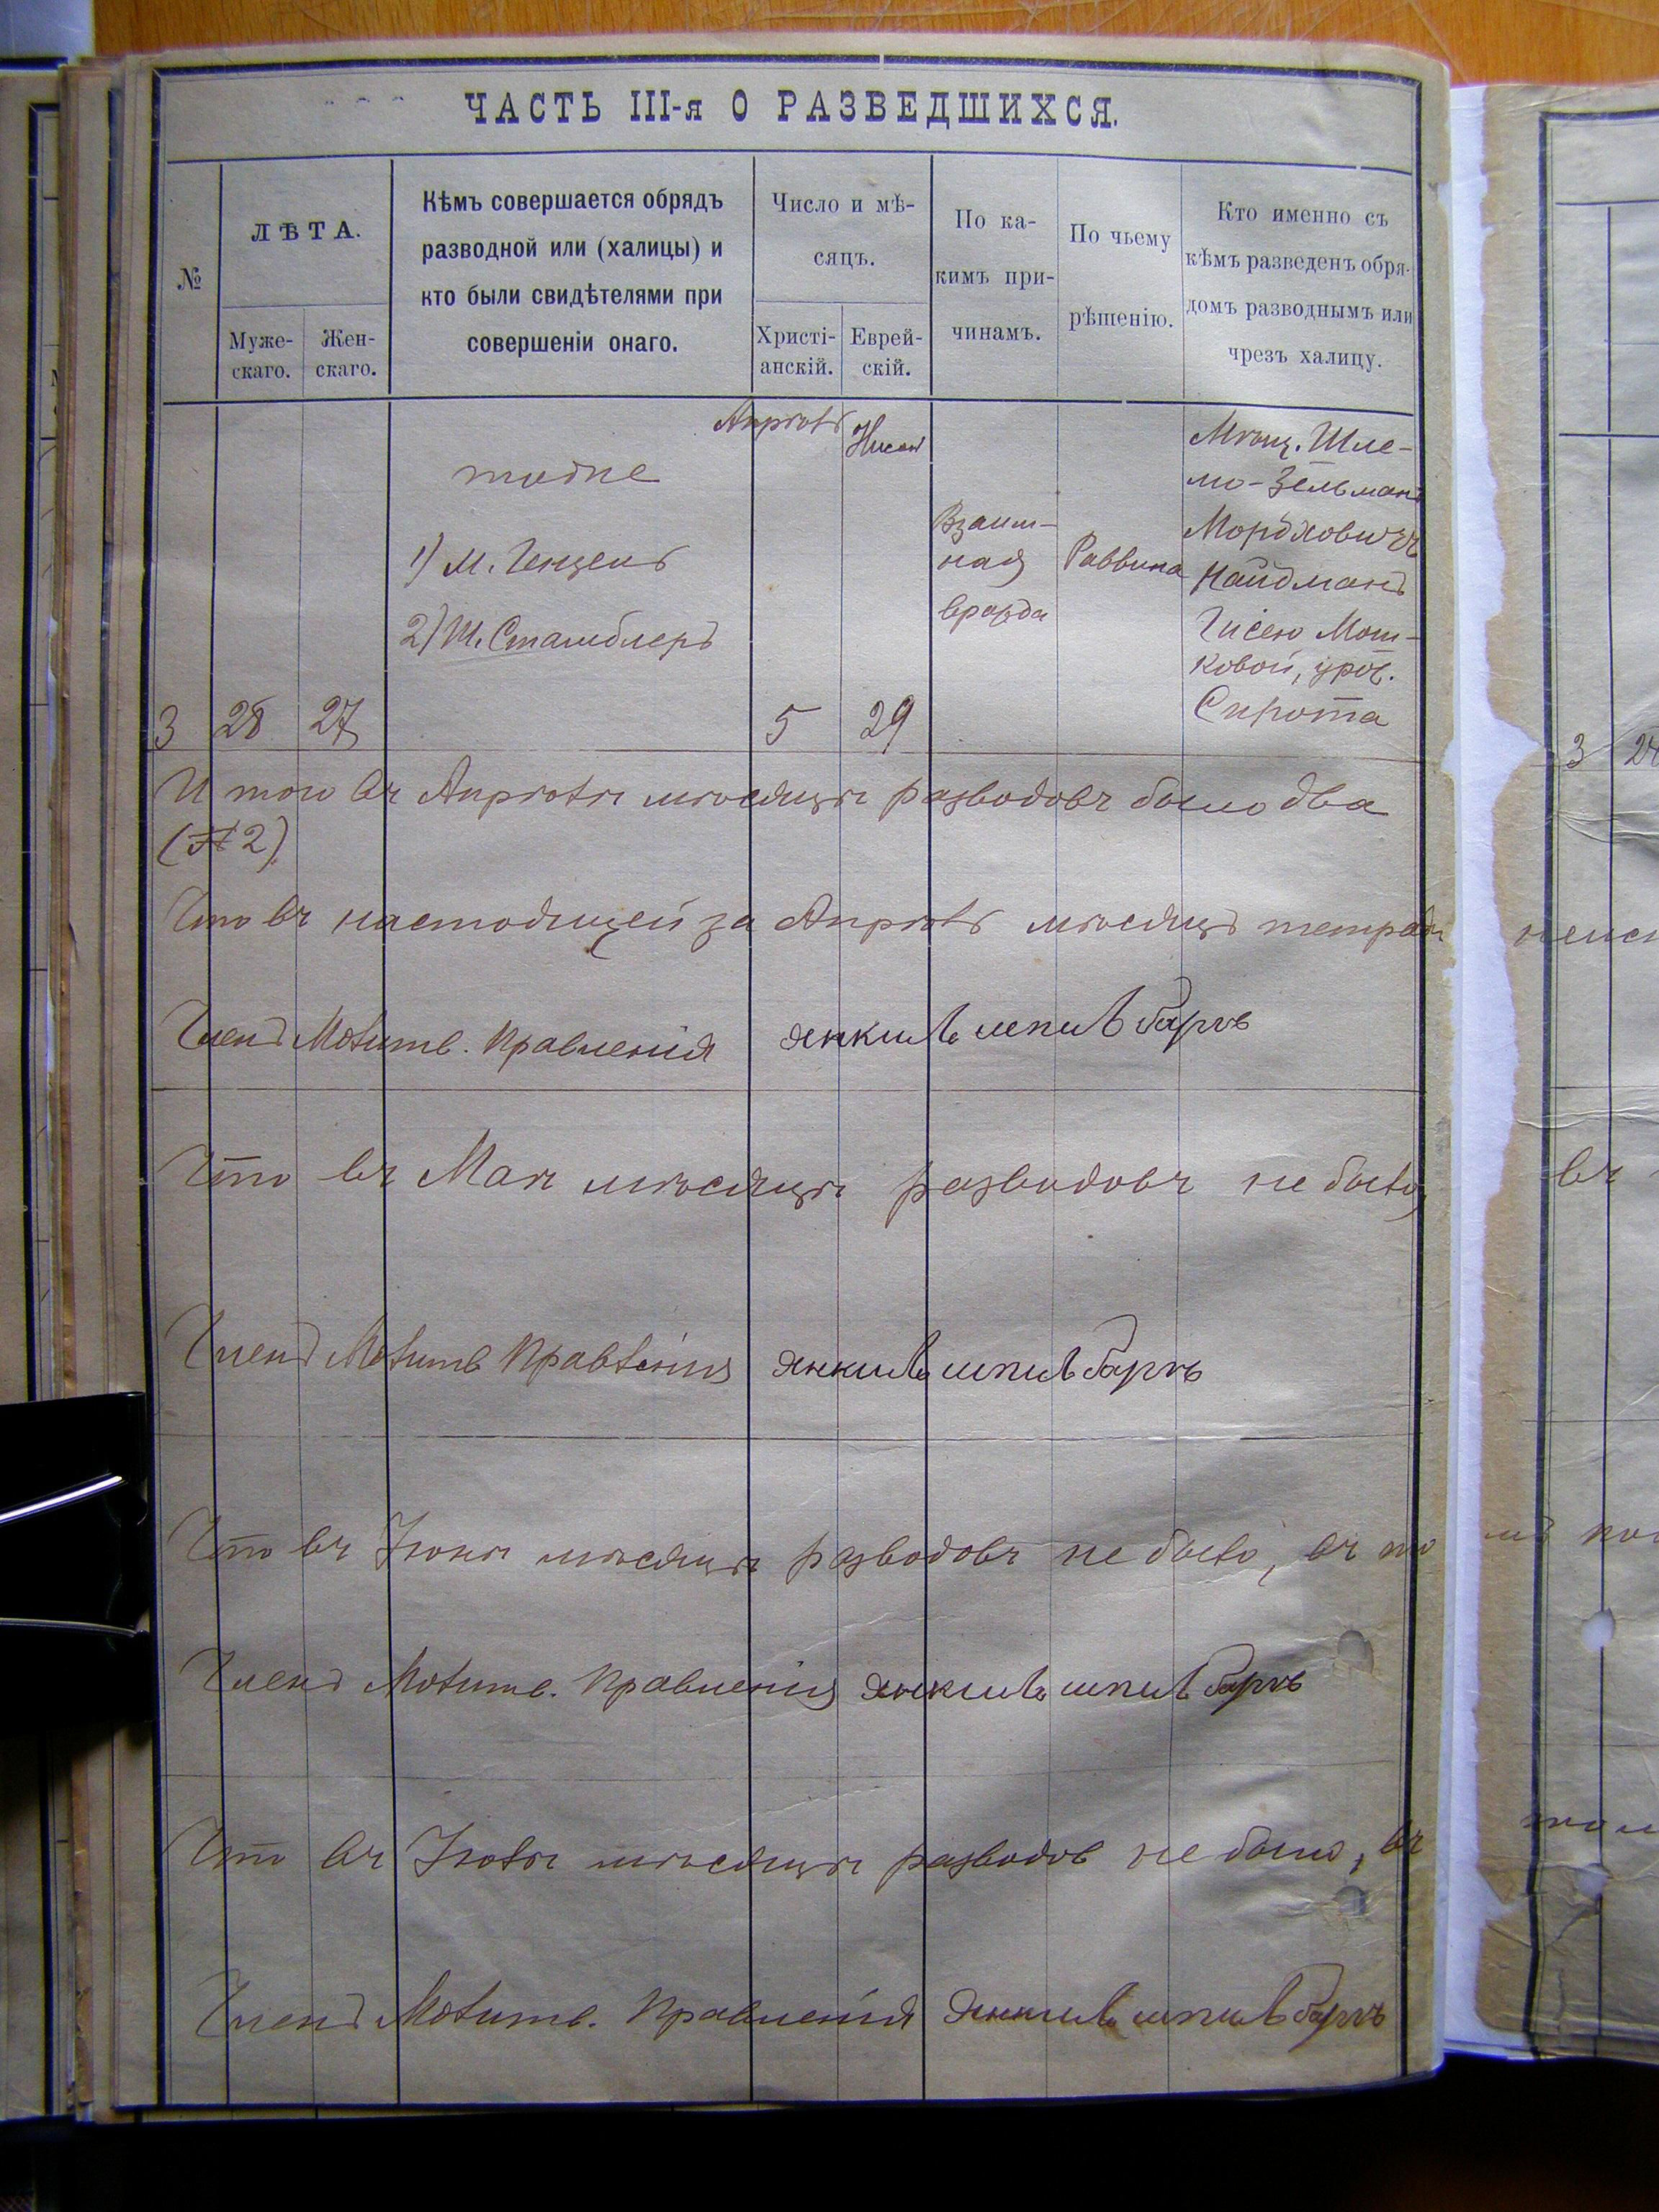 ЧАСТЬ III-я О РАЗВЕДШИХСЯ.
№
ЛѢТА.
Муже-
скаго.
Жен-
скаго.
Кѣмъ совершается обрядъ
разводной или (халицы) и
кто были свидѣтелями при
совершеніи онаго.
Число и мѣ-
сяцъ.
Христі-
анскій.
Еврей-
скій.
По ка-
кимъ при-
чинамъ.
По чьему
рѣшенію.
Кто именно съ
кѣмъ разведенъ обря-
домъ разводнымъ или
чрезъ халицу.
3
28
27
тоже
1) М. Генцель
2) Ш. Стамблеръ
Апрѣль
5
Нисон
29
Взаим-
ная
вражда
Раввина
Мѣщ. Шле-
мо-Зельманъ
Мордховичъ
Найдманъ
Гисею Мош-
ковой, урож.
Сирота
Итого въ Апрѣлѣ мѣсяцѣ разводовъ было два
(№ 2)
Что въ настоящей за Апрѣль мѣсяцъ тетради
Членъ Молитв. Правленія Янкиль шпильбаргъ
Что въ Маѣ мѣсяцѣ разводовъ не было,
Членъ Молитв Правленія Янкиль шпильбаргъ
Что въ Іюнѣ мѣсяцѣ разводовъ не было, въ то
Членъ Молитв. Правленія Янкиль шпильбаргъ
Что въ Іюлѣ мѣсяцѣ разводов не было, въ
Членъ Молитв. Правленія Янкиль шпильбаргъ
3
въ